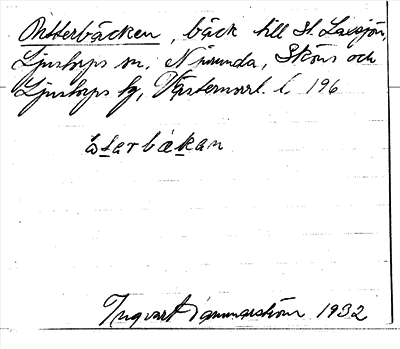 Ottterbäcken, bäck till St. Laxsjön,
Ljustorps sn, Njurunda, Sköns och
Ljustorps hg, Västernorrl. l. 196
ωtərbäkan
Ingvart Gunnarström 1932